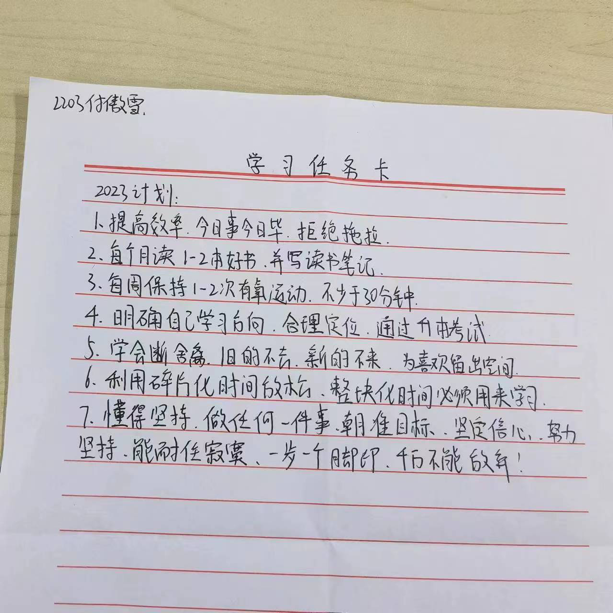 2203付傲雪.
学习任务卡
2023计划:
1.提高效率.今日事今日毕.拒绝拖拉.
2.每个月读1-2本好书.并写读书笔记.
3.每周保持1-2次有氧运动.不少于30分钟.
4.明确自己学习方向.合理定位.通过升本考试.
5.学会断舍离.旧的不去.新的不来.为喜欢留出空间.
6.利用碎片化时间放松.整块化时间必须用来学习.
7.懂得坚持.做任何一件事.朝准目标.坚定信心.努力
坚持.能耐住寂寞.一步一个脚印.千万不能放弃!